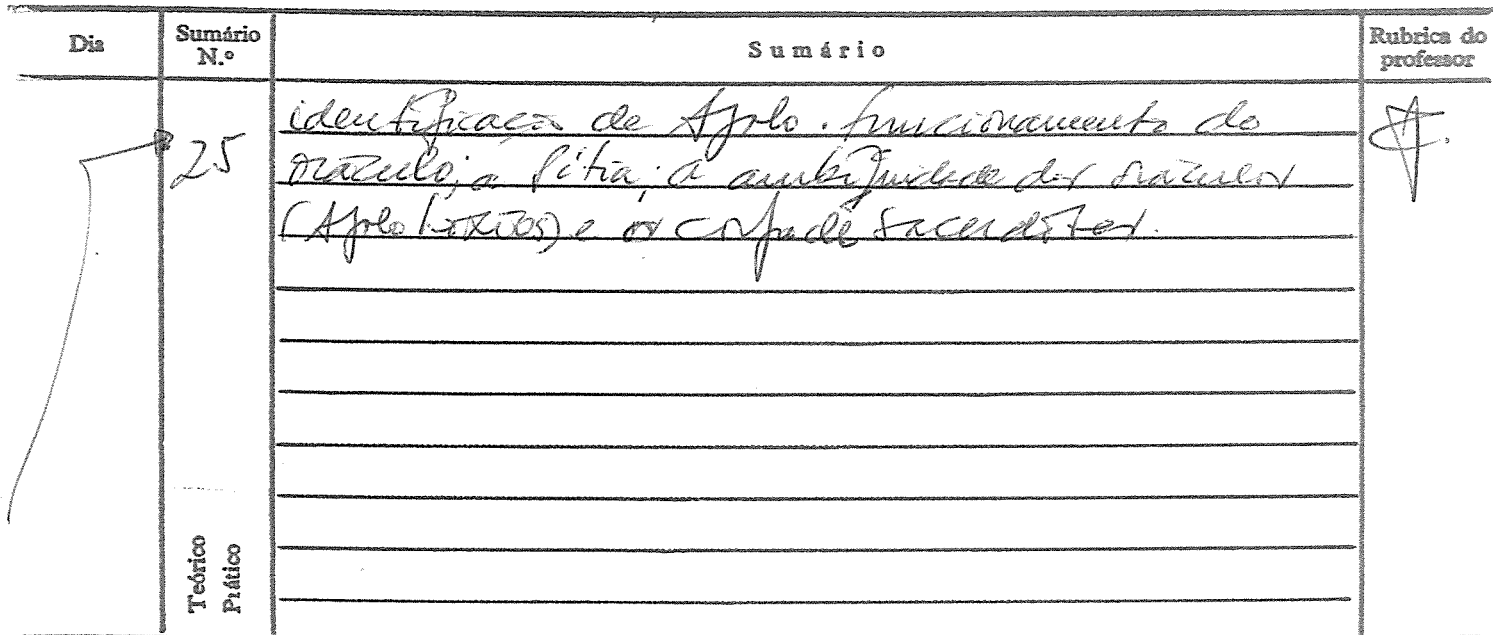 Dia
Sumário
N.º
Sumário
Rubrica do
professor
25
identificação de Apolo. funcionamento do
oráculo; a Pítia; a ambiguidade dos oráculos
(Apolo Loxios) e os corpos de sacerdotes.
Teórico
Prático